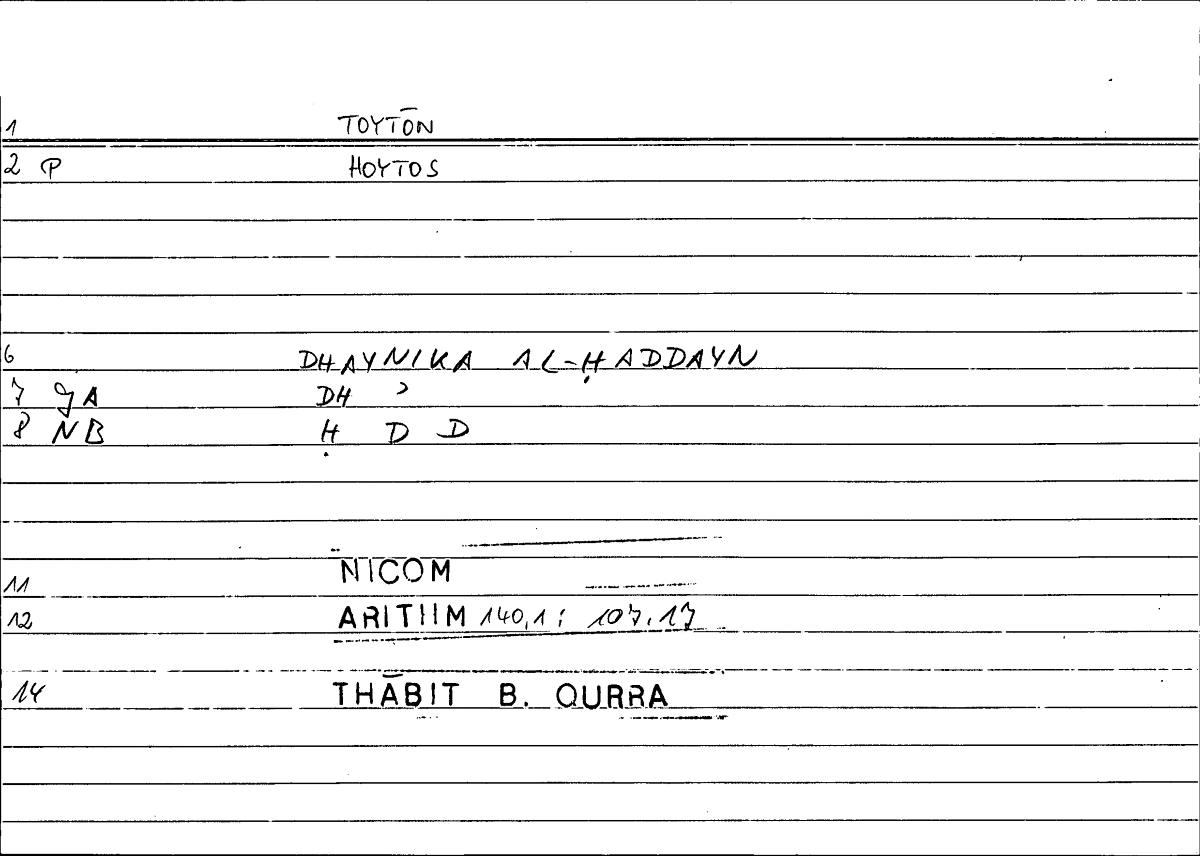 1 TOYTŌN
2 P HOYTOS
6 DHAYNIKA AL-ḤADDAYN
7 GA DH ʾ
8 NB Ḥ D D
11 NICOM
12 ARITIIM 140,1 ; 107.17
14 THĀBIT B. QURRA